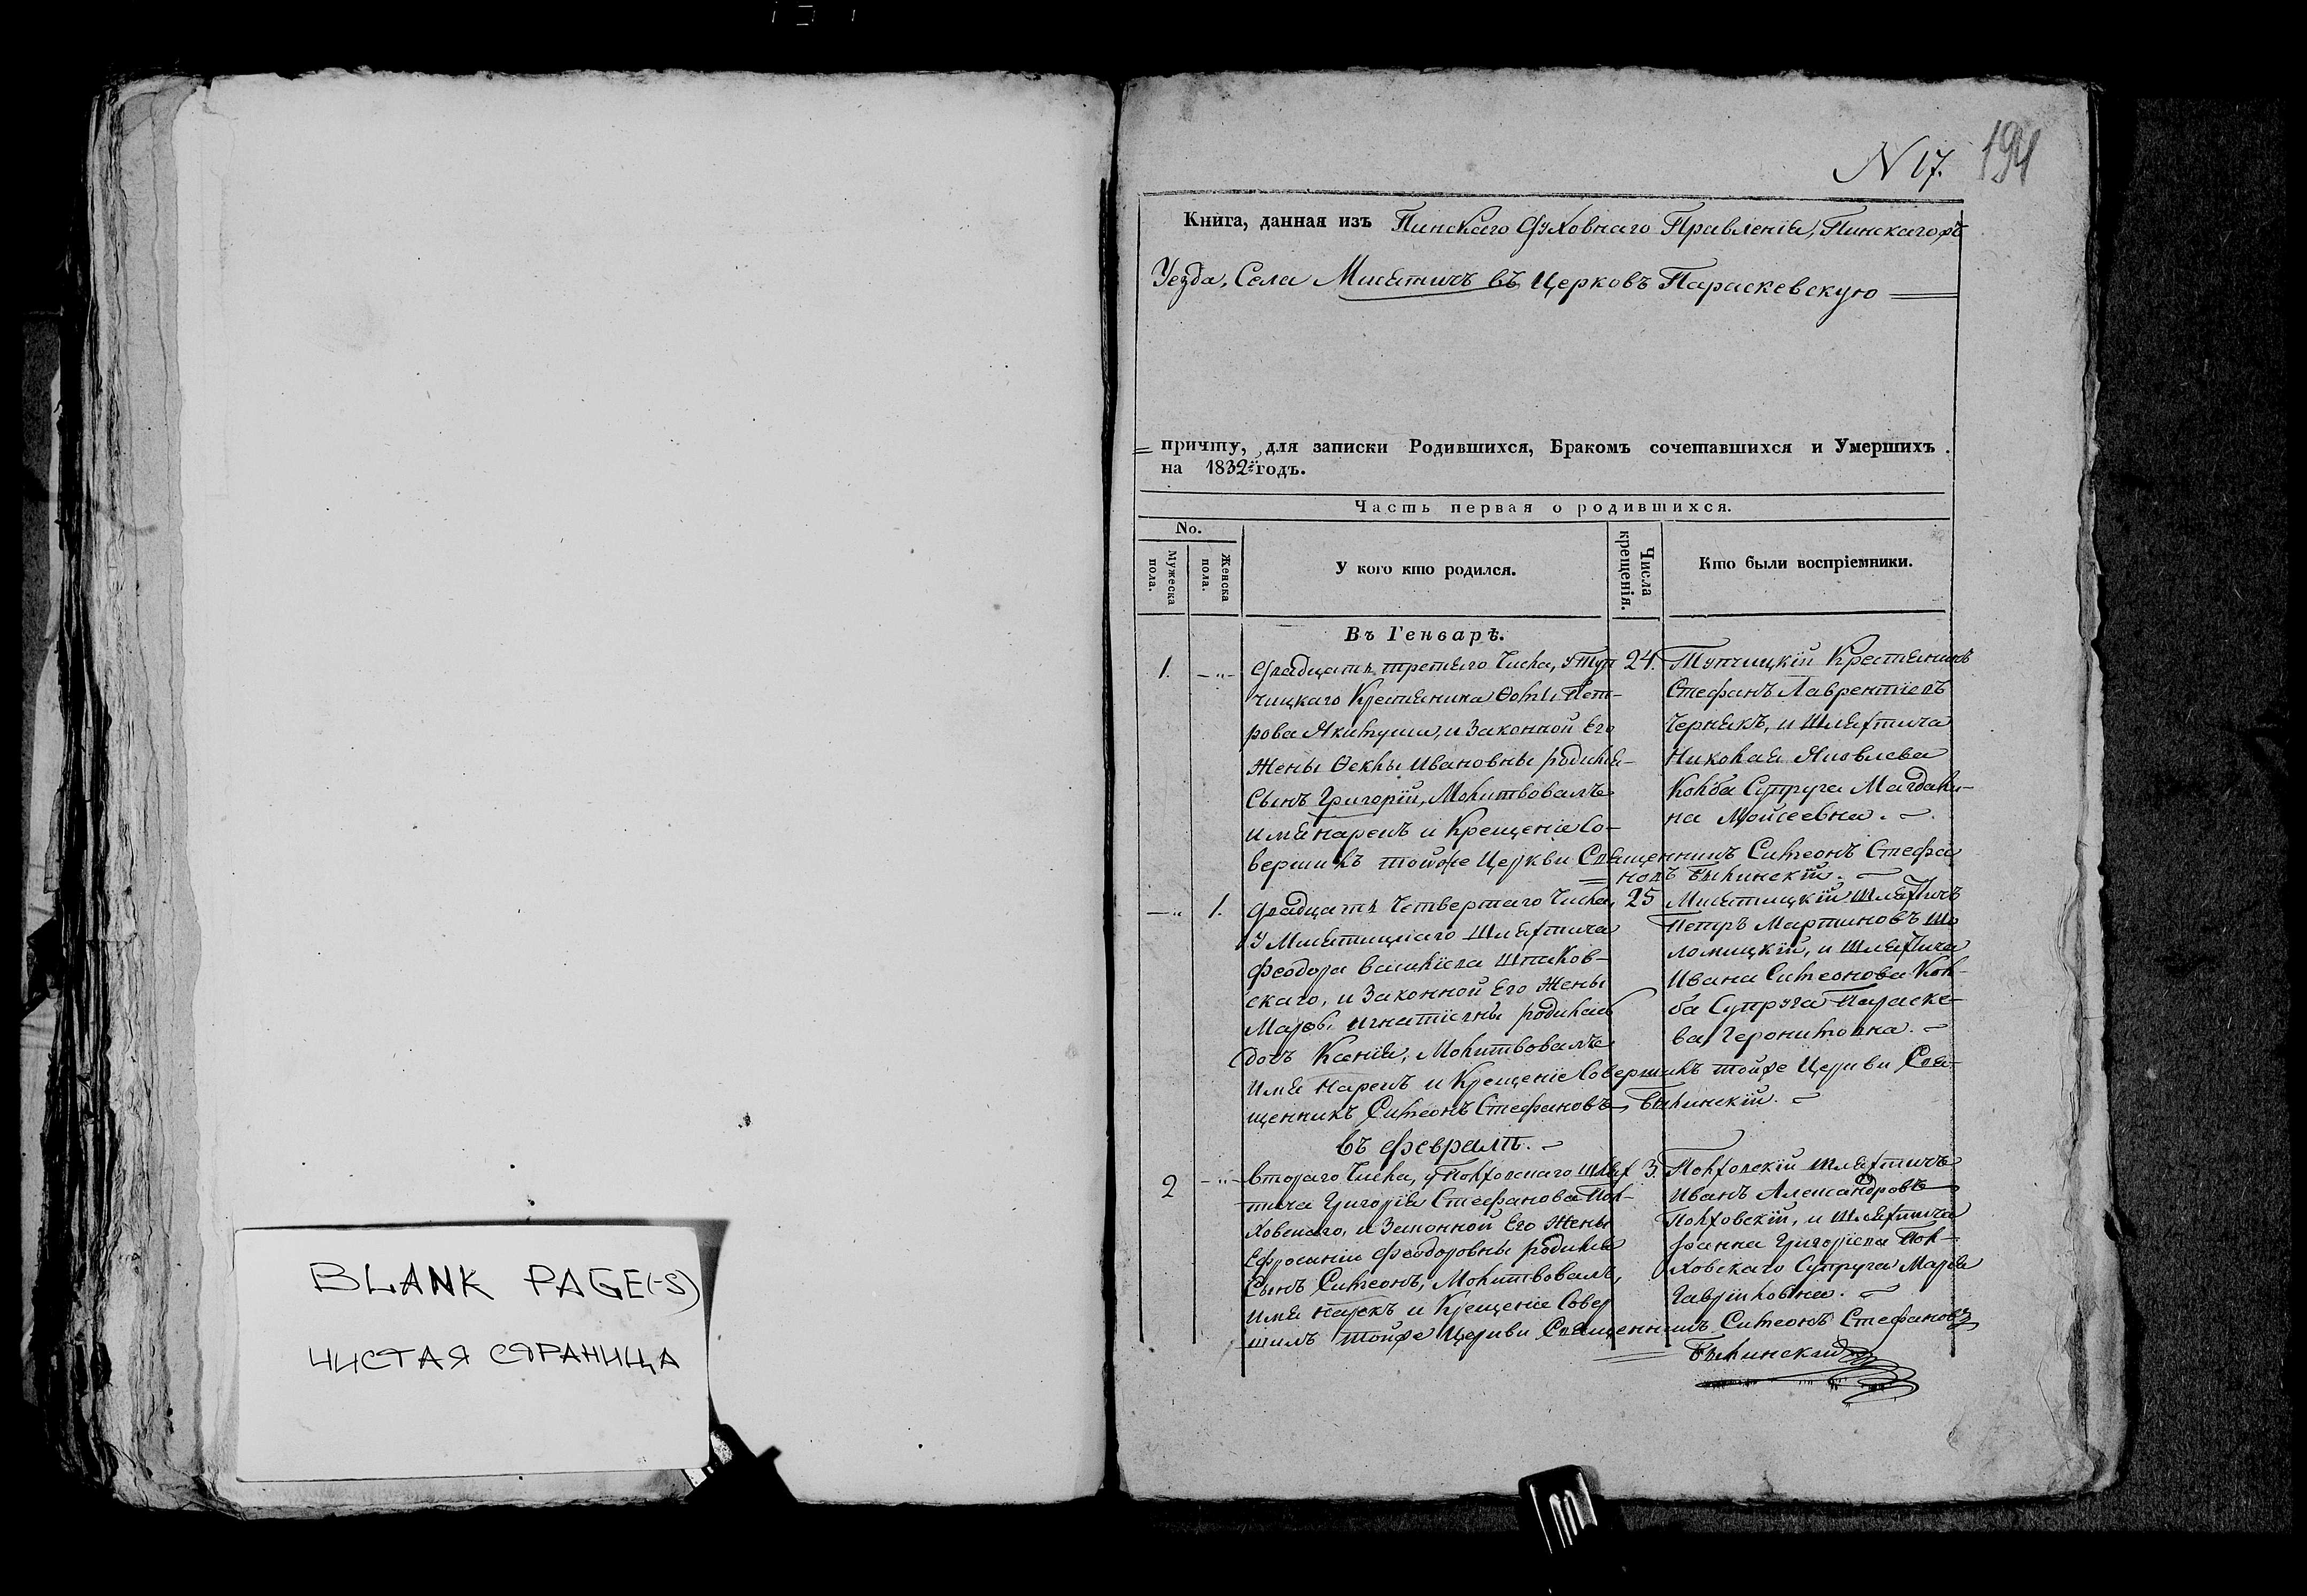 N 17.
194
Книга, данная изъ Пинскаго Духовнаго Правленія, Пинскаго
Уезда, Села Мисятичъ въ Церковъ Параскевскую
причту, для записки Родившихся, Бракомъ сочетавшихся и Умершихъ
на 1832й годъ.
Часть первая о родившихся.
No.
Мужеска пола.
Женска пола.
У кого кто родился.
Числа крещенія.
Кто были воспріемники.
Въ Генварѣ.
1. Двадцать третьяго Числа, у Туп
чицкаго Крестянина Фомы Пет-
рова Якимуши, и Законной Его
Жены Феклы Ивановны родился
Сынъ Григорій, Молитвовалъ
имя нарекъ и Крещеніе Со-
вершилъ тойже Церкви Священникъ Симеонъ Стефа
новъ Бѣлинскій.
24. Тупчицкій Крестянинъ
Стефанъ Лаврентіевъ
Чернякъ, и Шляхтича
Николая Яковлева
Колба Супруга Магдали-
на Мойсеевна.
1. Двадцать Четвертаго Числа,
У Мисятицкаго Шляхтича
Феодора Василіева Шпаков-
скаго, и Законной Его Жены
Маріи Игнатіевны родилась
дочъ Ксенія, Молитвовалъ
Имя Нарекъ и Крещеніе Совершилъ тойже Церкви Свя-
щенникъ Симеонъ Стефановъ Бѣлинскій.
25 Мисятицкій Шляхтичъ
Петръ Мартиновъ Шо
ломицкій, и Шляхтича
Ивана Симеонова Кол-
ба Супруга Параске-
ва Геронимовна.
въ февралѣ.
2 Втораго Числа, у Полховскаго Шлях
тича Григорія Стефанова Пол-
ховскаго, и Законной Его Жены
Ефросиніи Феодоровны родился
Сынъ Симеонъ, Молитвовалъ,
имя нарекъ и Крещеніе Совер
шилъ тойже Церкви Священникъ Симеонъ Стефановъ
Бѣлинскій
3. Полховскій Шляхтичъ
Иванъ Александровъ
Полховскій, и Шляхтича
Григоріева Пол-
ховскаго Супруга Марія
Гавріиловна.
BLANK PAGE(-S)
ЧИСТАЯ СТРАНИЦА